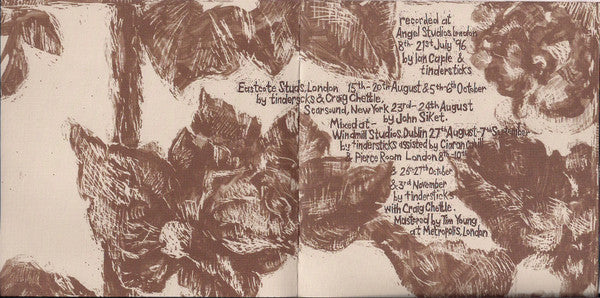 recorded at
Angel Studios, London
8th - 21st July '96
by Ian Caple &
tindersticks
Eastcote Studs. London 15th - 20th August & 5th-8th October
by tindersticks & Craig Chettle.
Scarsound, New York 23rd - 24th August
by John Siket.
Mixed at -
Windmill Studios, Dublin 27th August - 7th September
by tindersticks assisted by Ciaran Cahill
& Pierce Room London 8th - 10th
& 26th 27th October
& 3rd November
by tindersticks
with Craig Chettle.
Mastered by Tim Young
at Metropolis, London